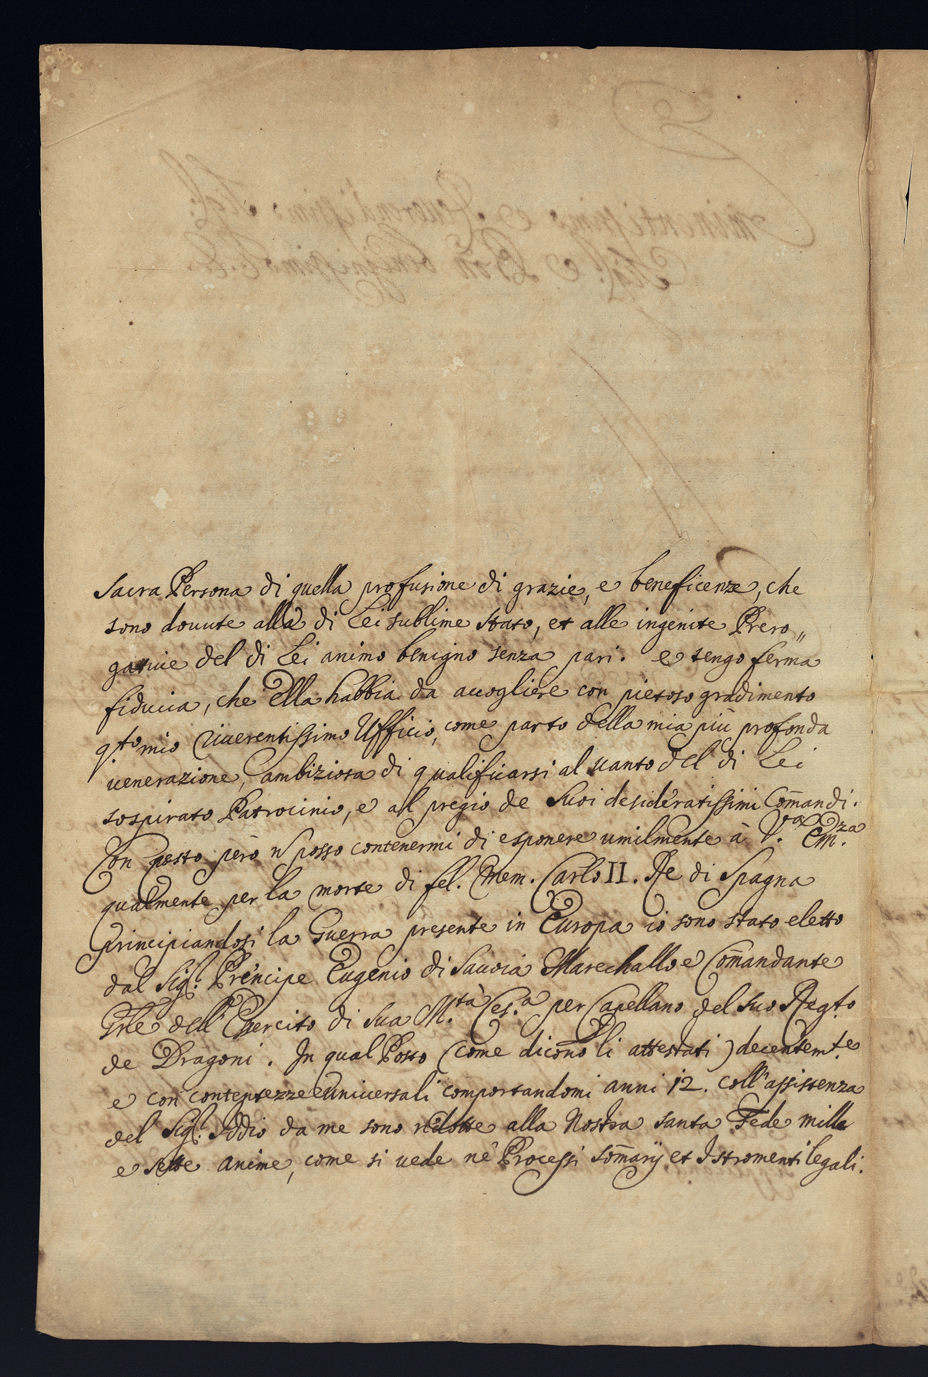 Sacra Persona di quella profusione di grazie, e beneficenze, che
sono douute alla di Lei sublime stato, et alle ingenite Prero„
gatiue del di Lei animo benigno senza pari. e tengo ferma
fiducia, che Ella habbia da accogliere con pietoso gradimento
q.to mio riuerentissimo Ufficio, come parto della mia più profonda
uenerazione, ambiziosa di qualificarsi al uanto del di Lei
sospirato Patrocinio, e al pregio de Suoi desideratissimi Comandi.
Con questo però ñ posso contenermi di esponere umilmente à V.ra Em.za
qualmente per la morte di fel. Mem. Carlo II. Re di Spagna
principiandosi la Guerra presente in Europa io sono stato eletto
dal Sig.r Prencipe Eugenio di Sauoia Marechallo e Comandante
Grle dell Esercito di Sua M.tà Ces.a per Capellano del suo Regt.o
de Dragoni. In qual Posto (come dicono li attestati) decentem.te
e con contentezze uniuersali comportandomi anni 12. coll'assistenza
del Sig.r Iddio da me sono ridotte alla Nostra santa Fede mille
e sette anime, come si uede nè Processi Somarij et Istromenti legali.